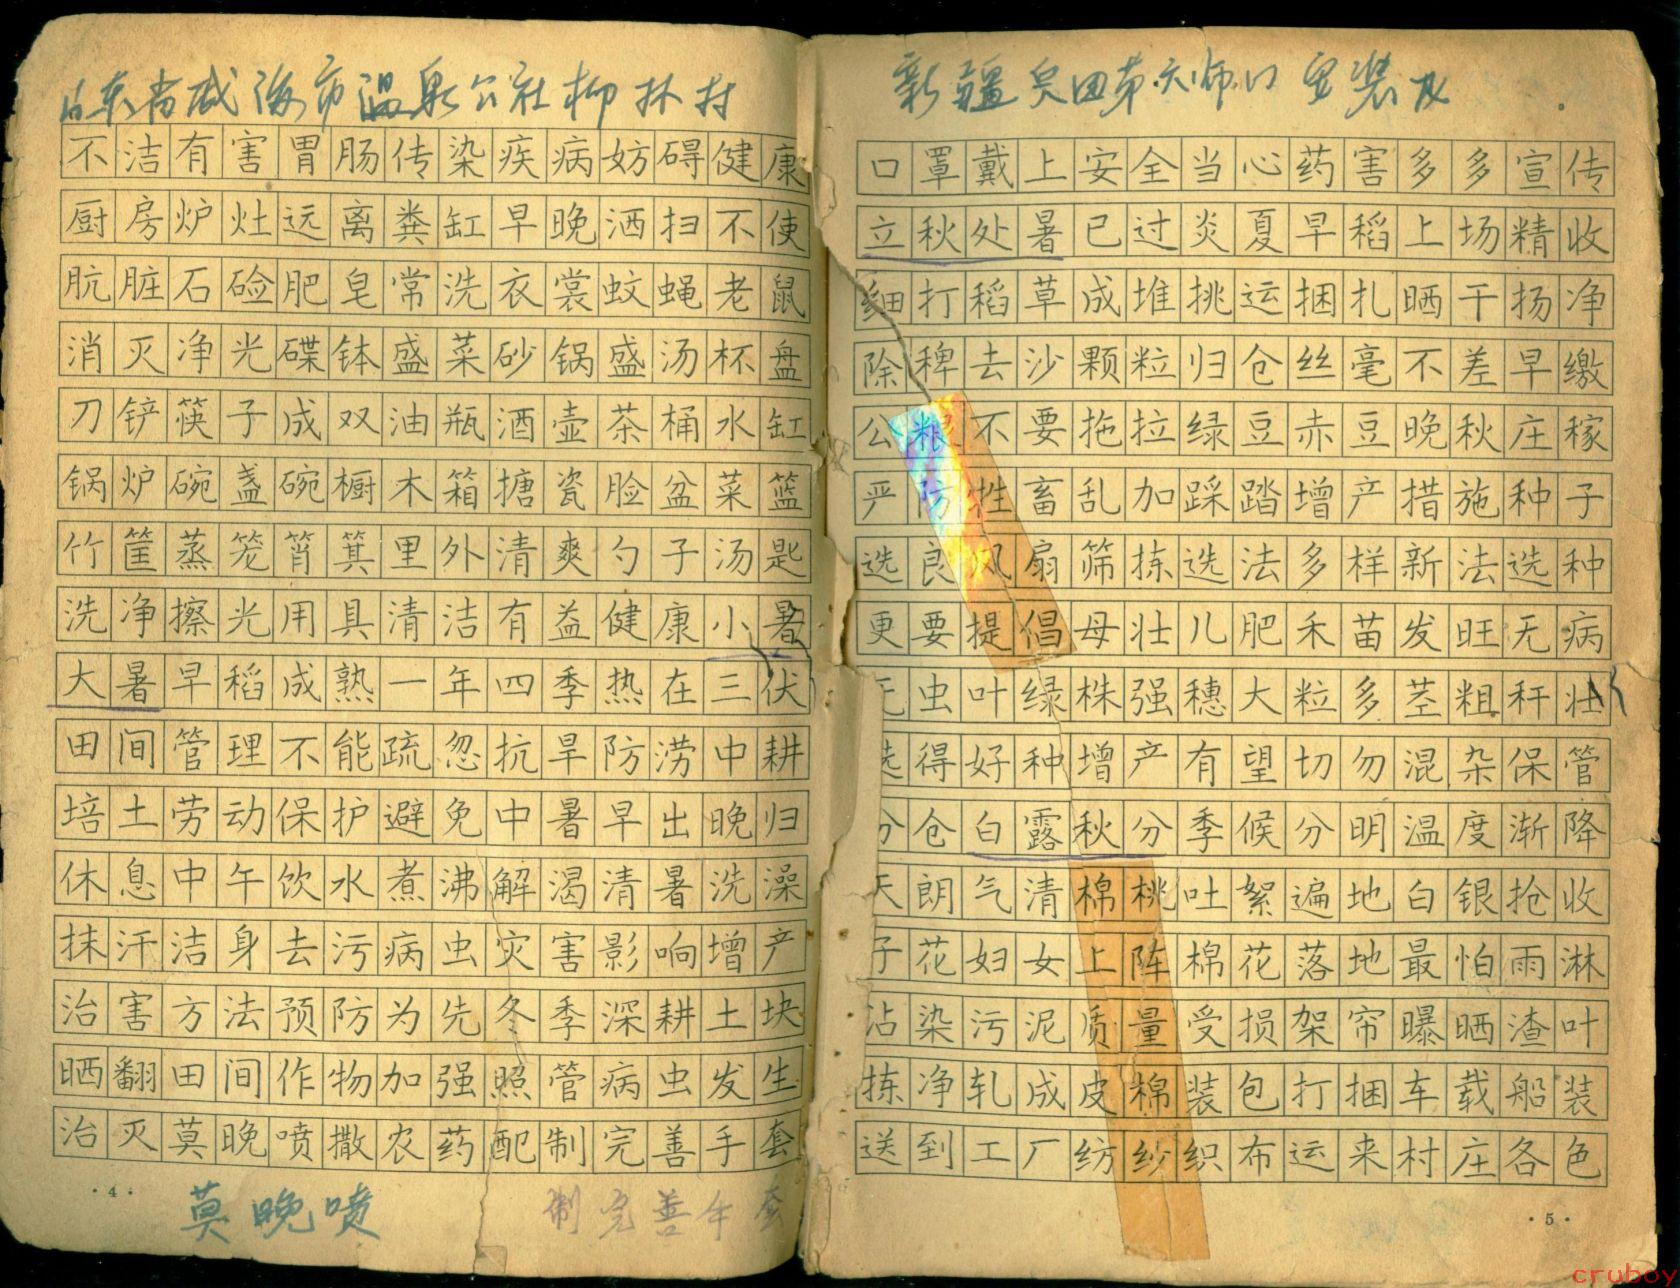 山东省威海市温泉公社柳林村
不洁有害胃肠传染疾病妨碍健康
厨房炉灶远离粪缸早晚洒扫不使
肮脏石硷肥皂常洗衣裳蚊蝇老鼠
消灭净光碟钵盛菜砂锅盛汤杯盘
刀铲筷子成双油瓶酒壶茶桶水缸
锅炉碗盏碗橱木箱搪瓷脸盆菜篮
竹筐蒸笼筲箕里外清爽勺子汤匙
洗净擦光用具清洁有益健康小暑
大暑早稻成熟一年四季热在三伏
田间管理不能疏忽抗旱防涝中耕
培土劳动保护避免中暑早出晚归
休息中午饮水煮沸解渴清暑洗澡
抹汗洁身去污病虫灾害影响增产
治害方法预防为先冬季深耕土块
晒翻田间作物加强照管病虫发生
治灭莫晚喷撒农药配制完善手套
·4·
莫晚喷
制完善手套
新疆田第六师安装
口罩戴上安全当心药害多多宣传
立秋处暑已过炎夏早稻上场精收
细打稻草成堆挑运捆扎晒干扬净
除稗去沙颗粒归仓丝毫不差早缴
公粮不要拖拉绿豆赤豆晚秋庄稼
严防牲畜乱加踩踏增产措施种子
选良风扇筛拣选法多样新法选种
更要提倡母壮儿肥禾苗发旺无病
无虫叶绿株强穗大粒多茎粗秆壮
选得好种增产有望切勿混杂保管
分仓白露秋分季候分明温度渐降
天朗气清棉桃吐絮遍地白银抢收
子花妇女上阵棉花落地最怕雨淋
沾染污泥质量受损架帘曝晒渣叶
拣净轧成皮棉装包打捆车载船装
送到工厂纺纱织布运来村庄各色
·5·
cruboy